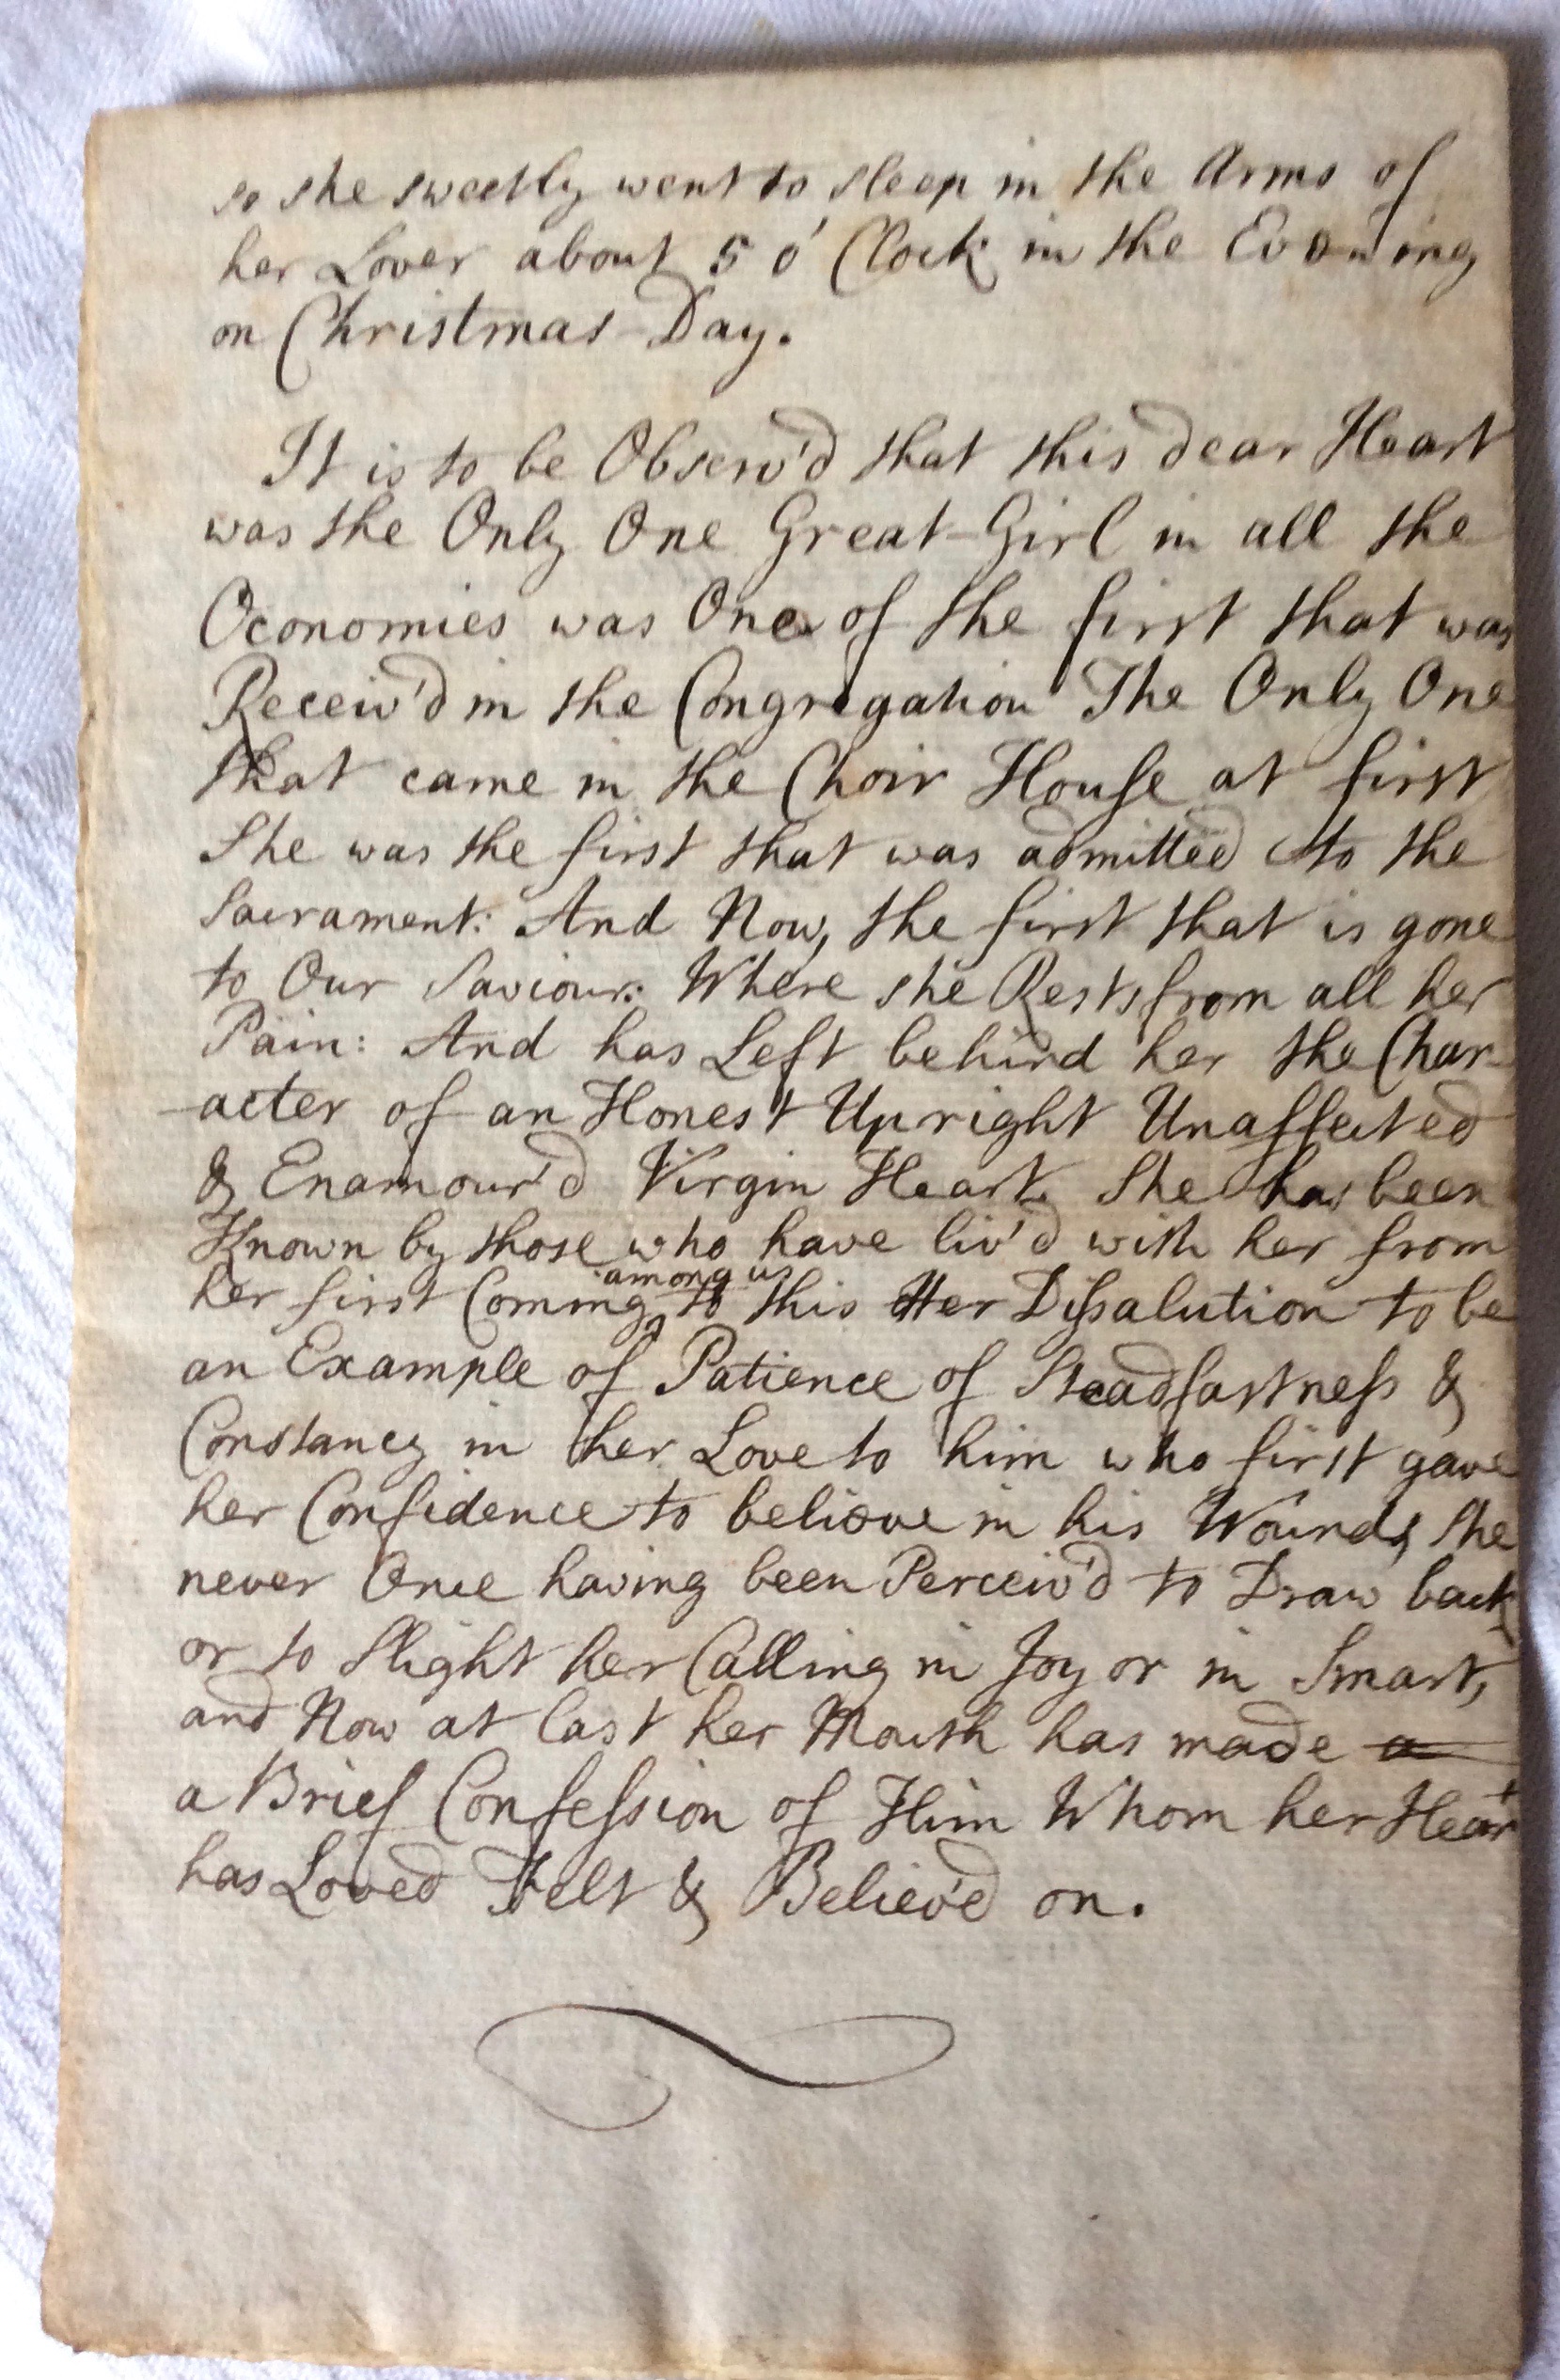 so she sweetly went to sleep in the Arms of
her Lover about 5 o' Clock in the Evening
on Christmas-Day.
It is to be Observ'd that this dear Heart
was the Only One Great-Girl in all the
Oconomies was One of the first that was
Receiv'd in the Congregation The Only One
that came in the Choir House at first
She was the first that was admitted to the
Sacrament: And Now, the first that is gone
to Our Saviour: Where she Rests from all her
Pain: And has Left behind her the Char-
-acter of an Honest Upright Unaffected
& Enamour'd Virgin Heart. She has been
Known by those who have liv'd with her from
among us
her first Coming ^ to this Her Dissalution to be
an Example of Patience of Steadfastness &
Constancy in her Love to him who first gave
her Confidence to believe in his Wounds, She
never Once having been Perceiv'd to Draw back
or to Slight her Calling in Joy or in Smart,
and Now at last her Mouth has made a
a Brief Confession of Him Whom her Heart
has Loved Felt & Believ'd on.